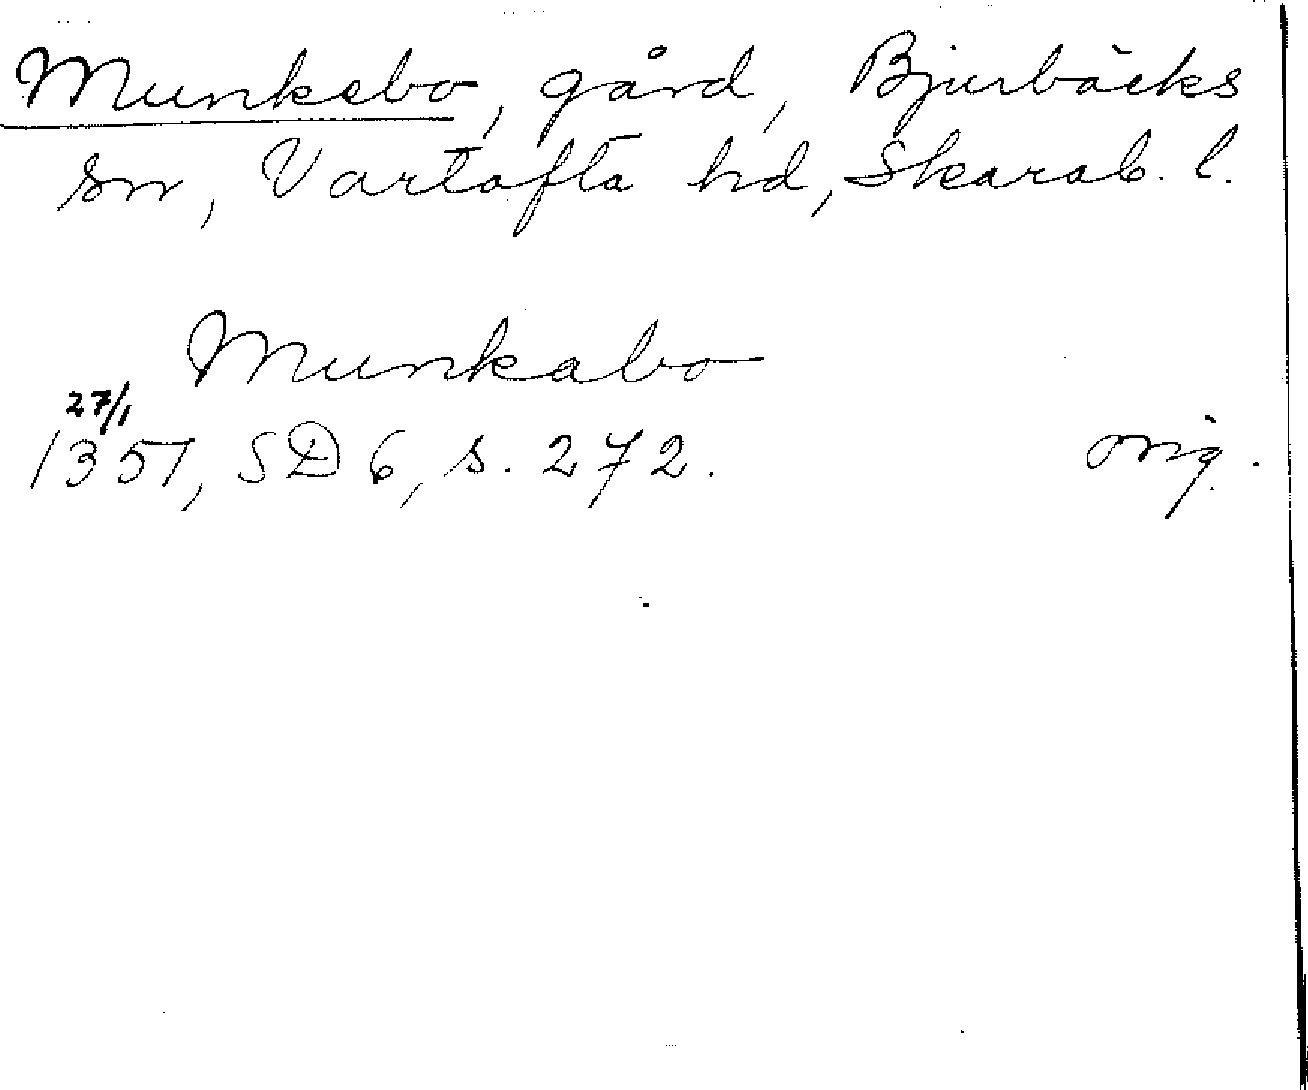 Munkebo, gård, Bjurbäcks
sn, Vartofta hd, Skarab. l.
Munkabo
27/1
1351, SD 6, s. 272. orig.